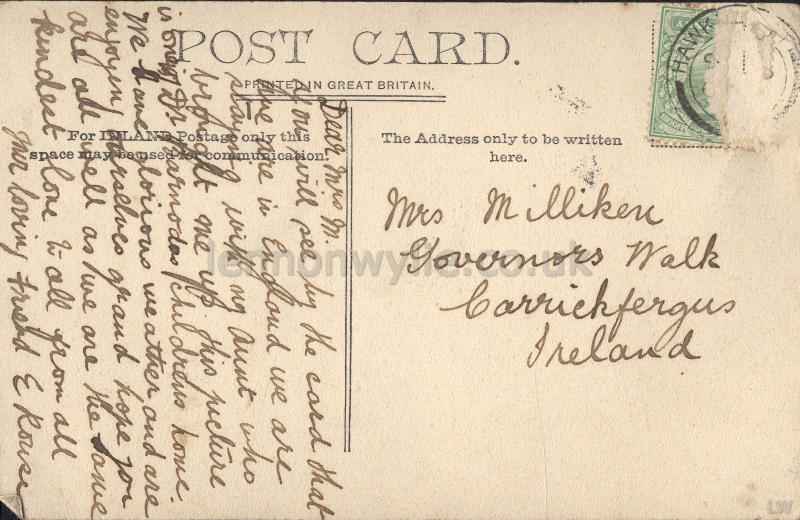 POST CARD.
PRINTED IN GREAT BRITAIN.
For INLAND Postage only this
space may be used for communication.
The Address only to be written
here.
HAWK
Mrs Milliken
Governors Walk
Carrickfergus
Ireland
Dear Mrs M.
You will see by the card that
we are in England we are
staying with my Aunt who
brought me up. this picture
is one of Dr Barnodas childrens home
We have glorious weather and are
enjoyen ourselves grand hope you
are all well as we are the same
kindest love to all from all
Your loving friend E Rouse
lennonwylie.co.uk
LW